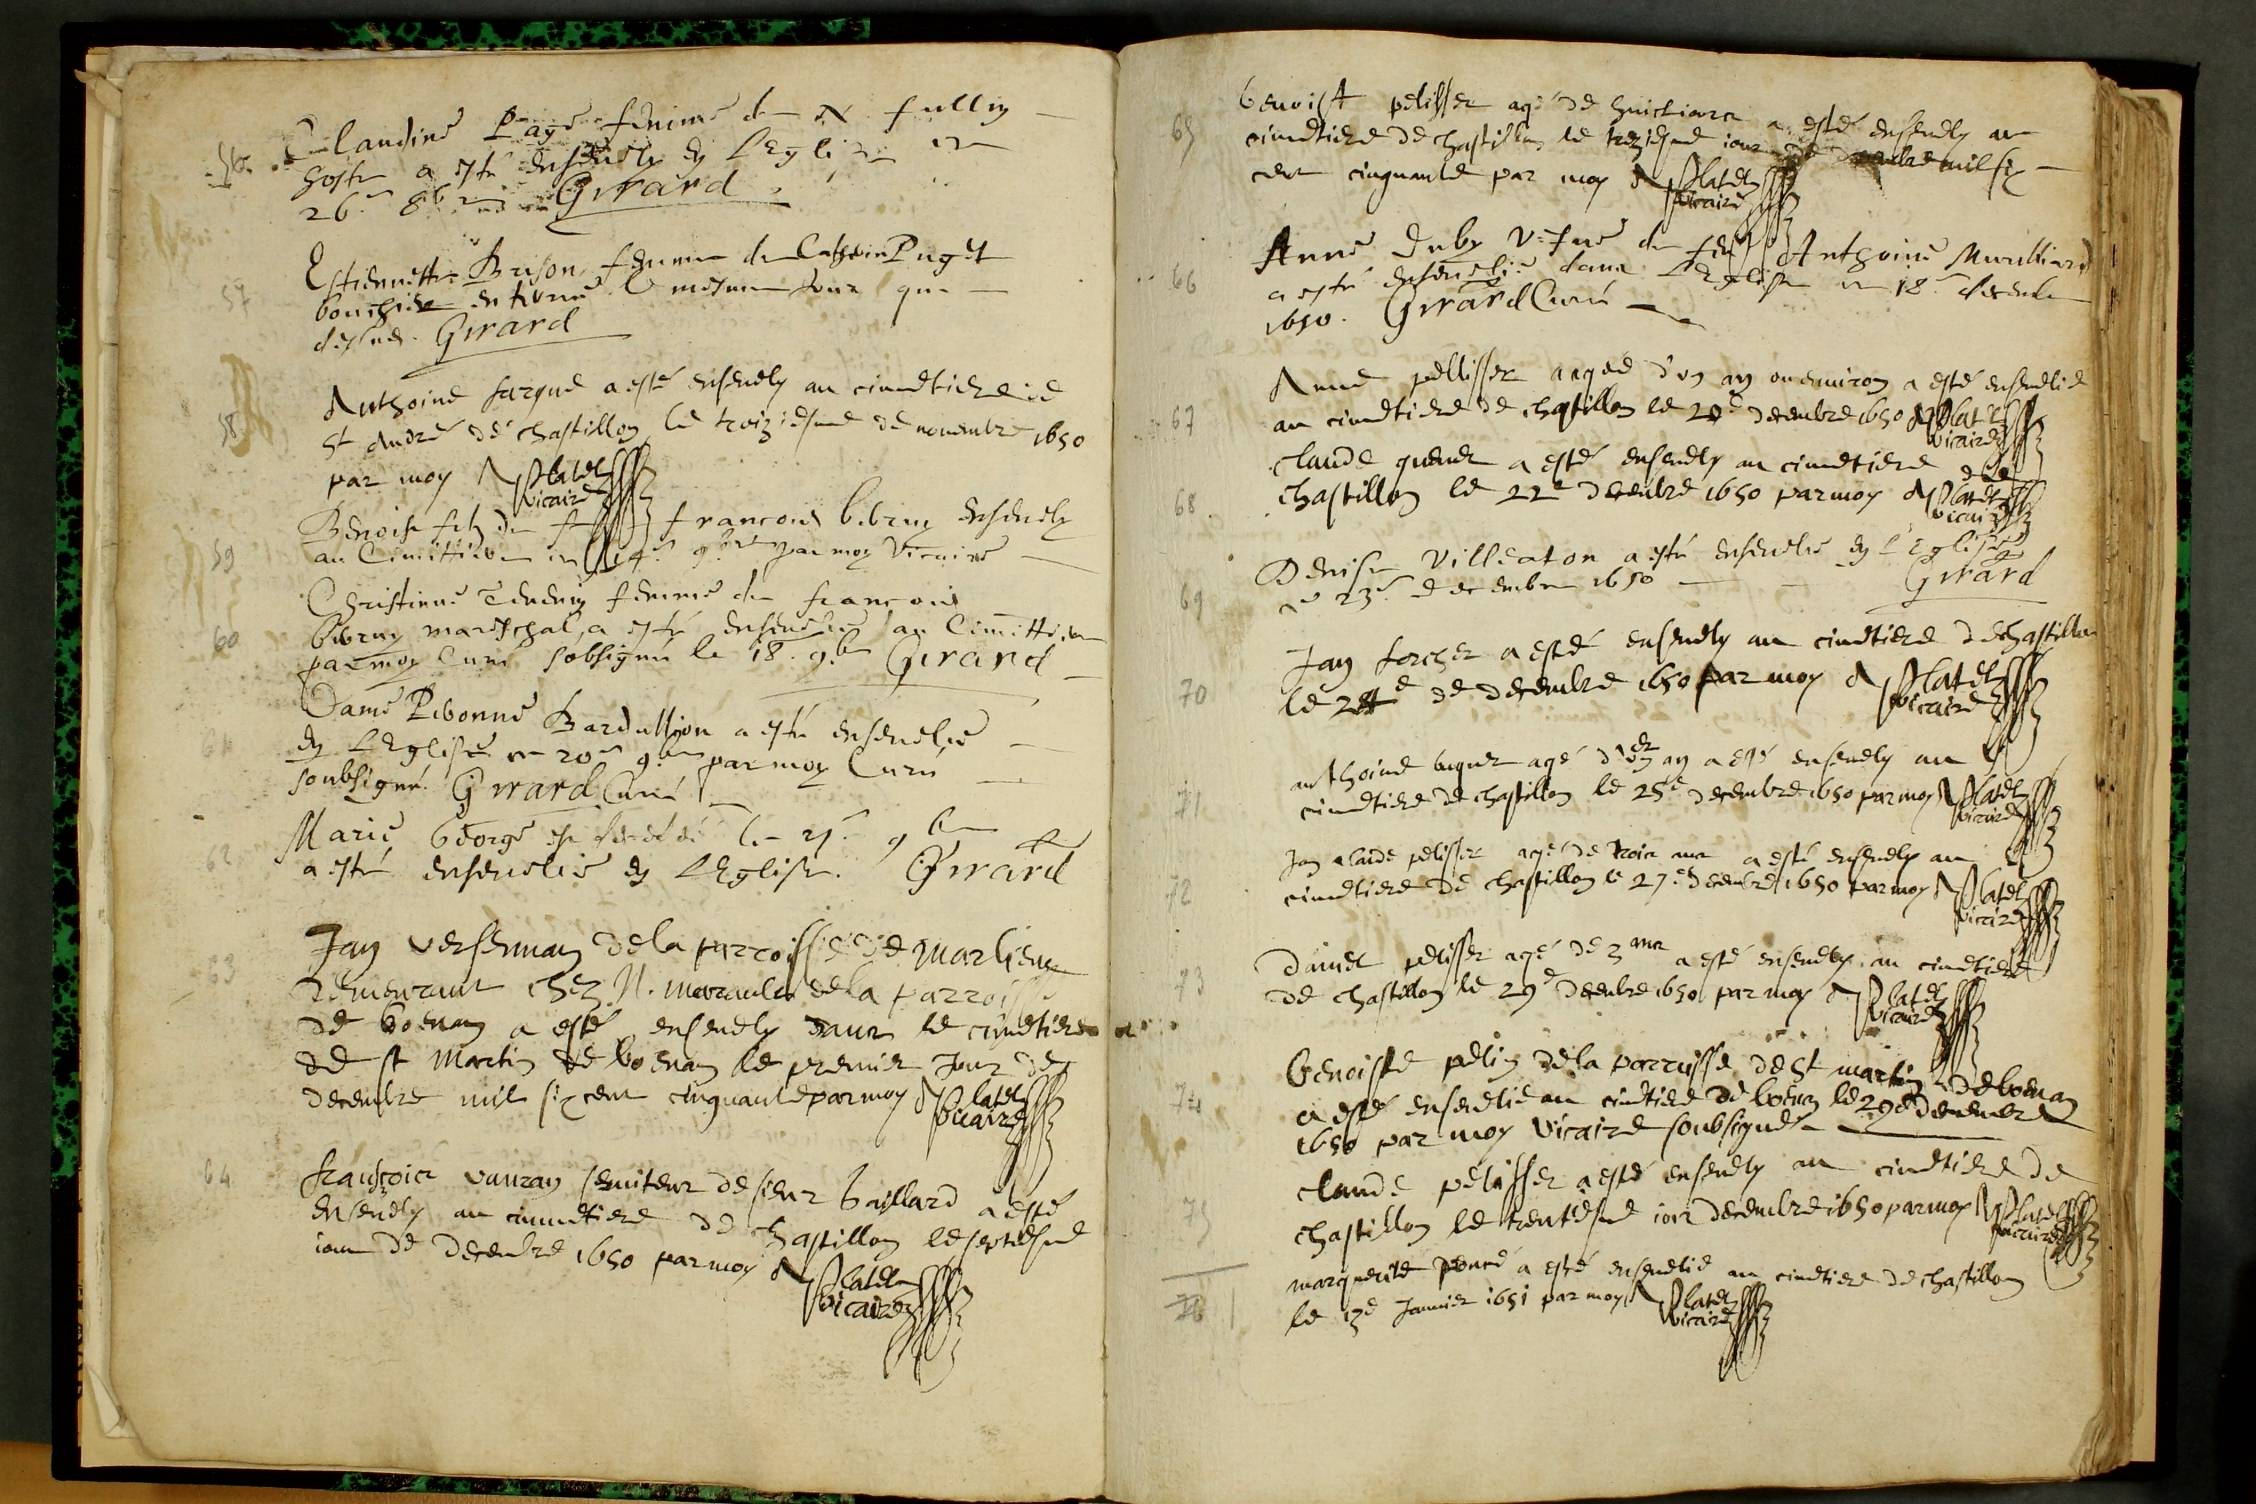 56
Claudine Page femme de N fullin
hoste a esté ensevely en L'Eglise
26e 8b Girard
57
Estiennette Brison femme de Cathein Puget
bouchier enterree le mesme jour que
dessus. Girard
58
Anthoine farque a esté ensevely au cimetiere de
st André de chastillon le troiziesme de novembre 1650
par moy Platet
vicaire
59
Benoist filz de francois ensevely
au Cimittiere 9bre par moy vicaire
60
Christinne femme de francois
mareschal, a esté ensevelie au Cimittiere
par moy Curé sobsigné le 18. 9b Girard
61
Dame Pivonne Bardussion a esté ensevelie
en L'Eglise 20e 9b par moy Curé
soubsigné. Girard Curé
62
Marie George le 9b
a esté ensevelie en L'Eglise. Girard
63
Jan verserman de la parroisse de marlieux
demeurant chez N. de la parroisse
de boenan a esté ensevely dans le cimetiere
de st Martin de boenan le premier Jour de
decembre mil six cent cinquante par moy Platet
vicaire
64
françois vauzan serviteur de sieur baillard a esté
ensevely au cimetiere de chastillon le septiesme
iour de decembre 1650 par moy Platet
vicaire
65
benoist pelisser agé de huict iours a esté ensevely au
cimetiere de chastillon le treziesme iour de decembre mil six
cent cinquante par moy Platet
vicaire
66
Anne Duby vefue de feu Anthoine Murilliard
a esté ensevelie dans L'Eglise 18e decemb
1650. Girard Curé
67
Anne pellisser aagee d'un an ou environ a esté ensevelie
au cimetiere de chastillon le decembre 1650 Platet
vicaire
68
claude a esté ensevely au cimetiere de
chastillon le 22e decembre 1650 par moy Platet
vicaire
69
Denise Villeaton a esté ensevelie en L'Eglise
23e decembre 1650 Girard
70
Jan forcher a esté ensevely au cimetiere de chastillon
le 24e de decembre 1650 par moy Platet
vicaire
71
anthoine agé d'un an a esté ensevely au
cimetiere de chastillon le 25e decembre 1650 par moy Platet
vicaire
72
Jan claude pelisser agé de trois ans a esté ensevely au
cimetiere de chastillon le 27e decembre 1650 par moy Platet
vicaire
73
Daniel pelisser agé de 3 ans a esté ensevely au cimetiere
de chastillon le 29e decembre 1650 par moy Platet
vicaire
74
benoiste pelin de la parroisse de st martin de boenan
a esté ensevelie au cimetiere de boenan le 29e decembre
1650 par moy vicaire soubsigné
75
claude pelisser a esté ensevely au cimetiere de
chastillon le trentiesme iour decembre 1650 par moy Platet
vicaire
76 1
marguerite a esté ensevelie au cimetiere de chastillon
le Janvier 1651 par moy Platet
vicaire